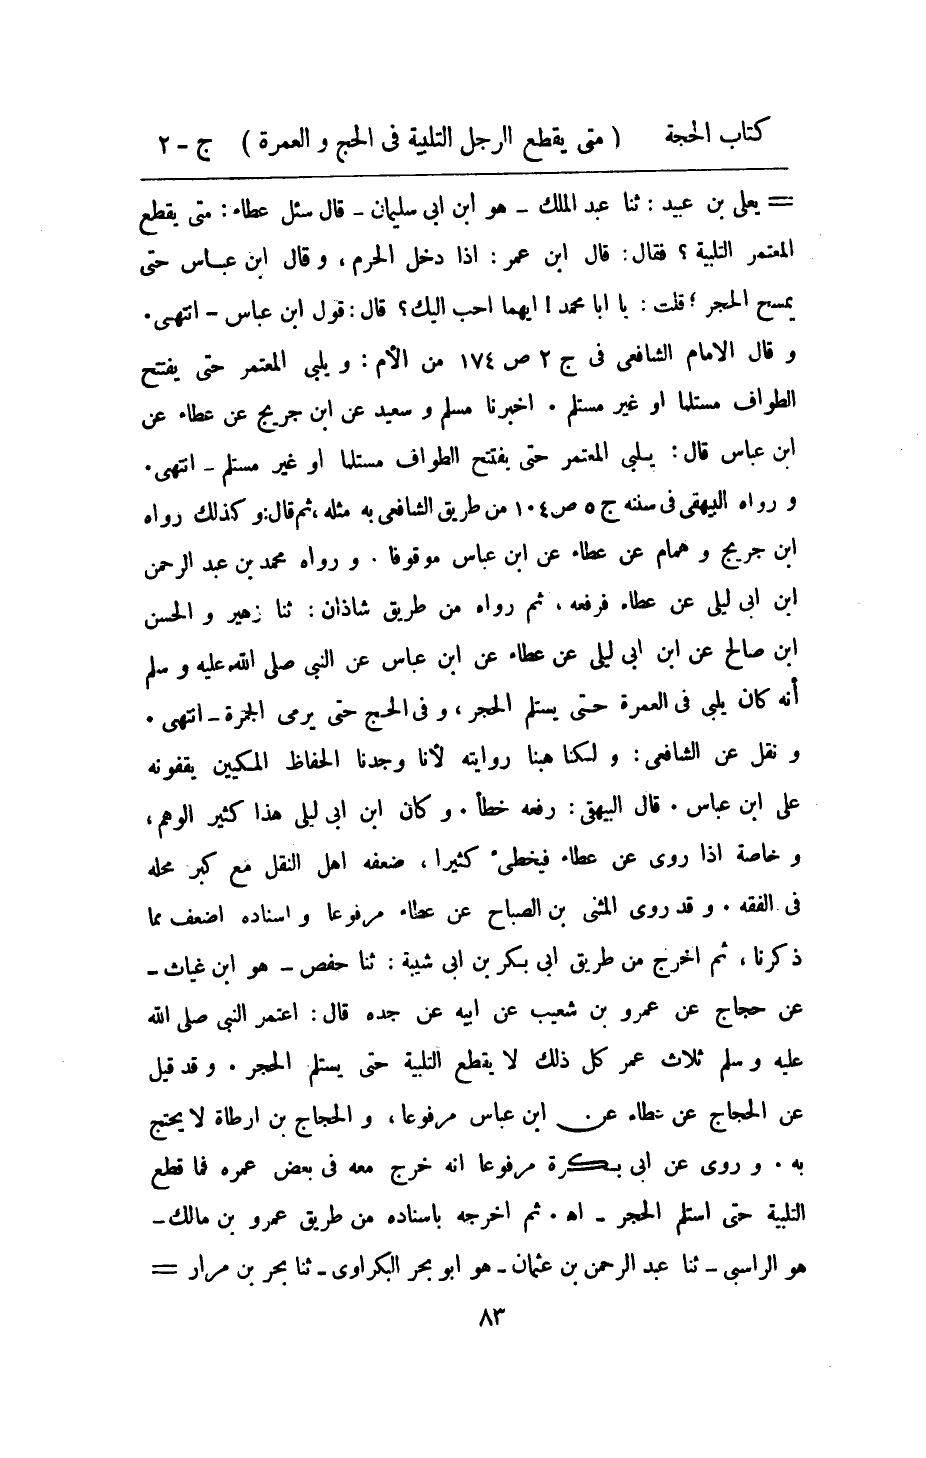 كتاب الحجة ( متى يقطع الرجل التلبية فى الحج و العمرة ) ج - ٢
= يعلى بن عبيد : ثنا عبد الملك - هو ابن ابى سليمان - قال سئل عطاء : متى يقطع
المعتمر التلبية ؟ فقال : قال ابن عمر : اذا دخل الحرم ، و قال ابن عباس حتى
يمسح الحجر ؛ قلت : يا ابا محمد ! ايهما احب اليك ؟ قال : قول ابن عباس - انتهى .
و قال الامام الشافعى فى ج ٢ ص ١٧٤ من الأم : و يلبى المعتمر حتى يفتتح
الطواف مستلما او غير مستلم . اخبرنا مسلم و سعيد عن ابن جريج عن عطاء عن
ابن عباس قال : يلبى المعتمر حتى يفتتح الطواف مستلما او غير مستلم - انتهى .
و رواه البيهقى فى سننه ج ٥ ص ١٠٤ من طريق الشافعى به مثله ، ثم قال : و كذلك رواه
ابن جريج و همام عن عطاء عن ابن عباس موقوفا . و رواه محمد بن عبد الرحمن
ابن ابى ليلى عن عطاء فرفعه ، ثم رواه من طريق شاذان : ثنا زهير و الحسن
ابن صالح عن ابن ابى ليلى عن عطاء عن ابن عباس عن النبى صلى الله عليه و سلم
أنه كان يلبى فى العمرة حتى يستلم الحجر ، و فى الحج حتى يرمى الجمرة - انتهى .
و نقل عن الشافعى : و لكنا هبنا روايته لأنا وجدنا الحفاظ المكيين يقفونه
على ابن عباس . قال البيهقى : رفعه خطأ . و كان ابن ابى ليلى هذا كثير الوهم ،
و خاصة اذا روى عن عطاء فيخطىء كثيرا ، ضعفه اهل النقل مع كبر محله
فى الفقه . و قد روى المثنى بن الصباح عن عطاء مرفوعا و اسناده اضعف مما
ذكرنا ، ثم اخرج من طريق ابى بكر بن ابى شيبة : ثنا حفص - هو ابن غياث -
عن حجاج عن عمرو بن شعيب عن ابيه عن جده قال : اعتمر النبى صلى الله
عليه و سلم ثلاث عمر كل ذلك لا يقطع التلبية حتى يستلم الحجر . و قد قيل
عن الحجاج عن عطاء عن ابن عباس مرفوعا ، و الحجاج بن ارطاة لا يحتج
به . و روى عن ابى بكرة مرفوعا انه خرج معه فى بعض عمره فما قطع
التلبية حتى استلم الحجر - اه . ثم اخرجه باسناده من طريق عمرو بن مالك -
هو الراسبى - ثنا عبد الرحمن بن عثمان - هو ابو بحر البكراوى - ثنا بحر بن مرار =
٨٣